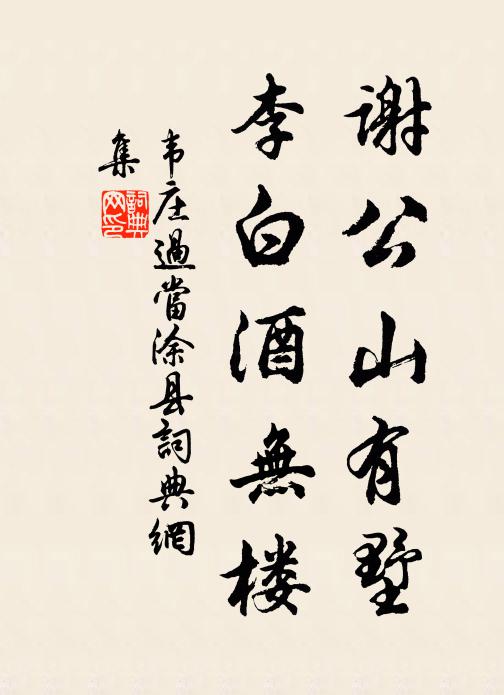 谢公山有墅
李白酒無楼
韦庄過當涂县詞典網
集
詞典网印